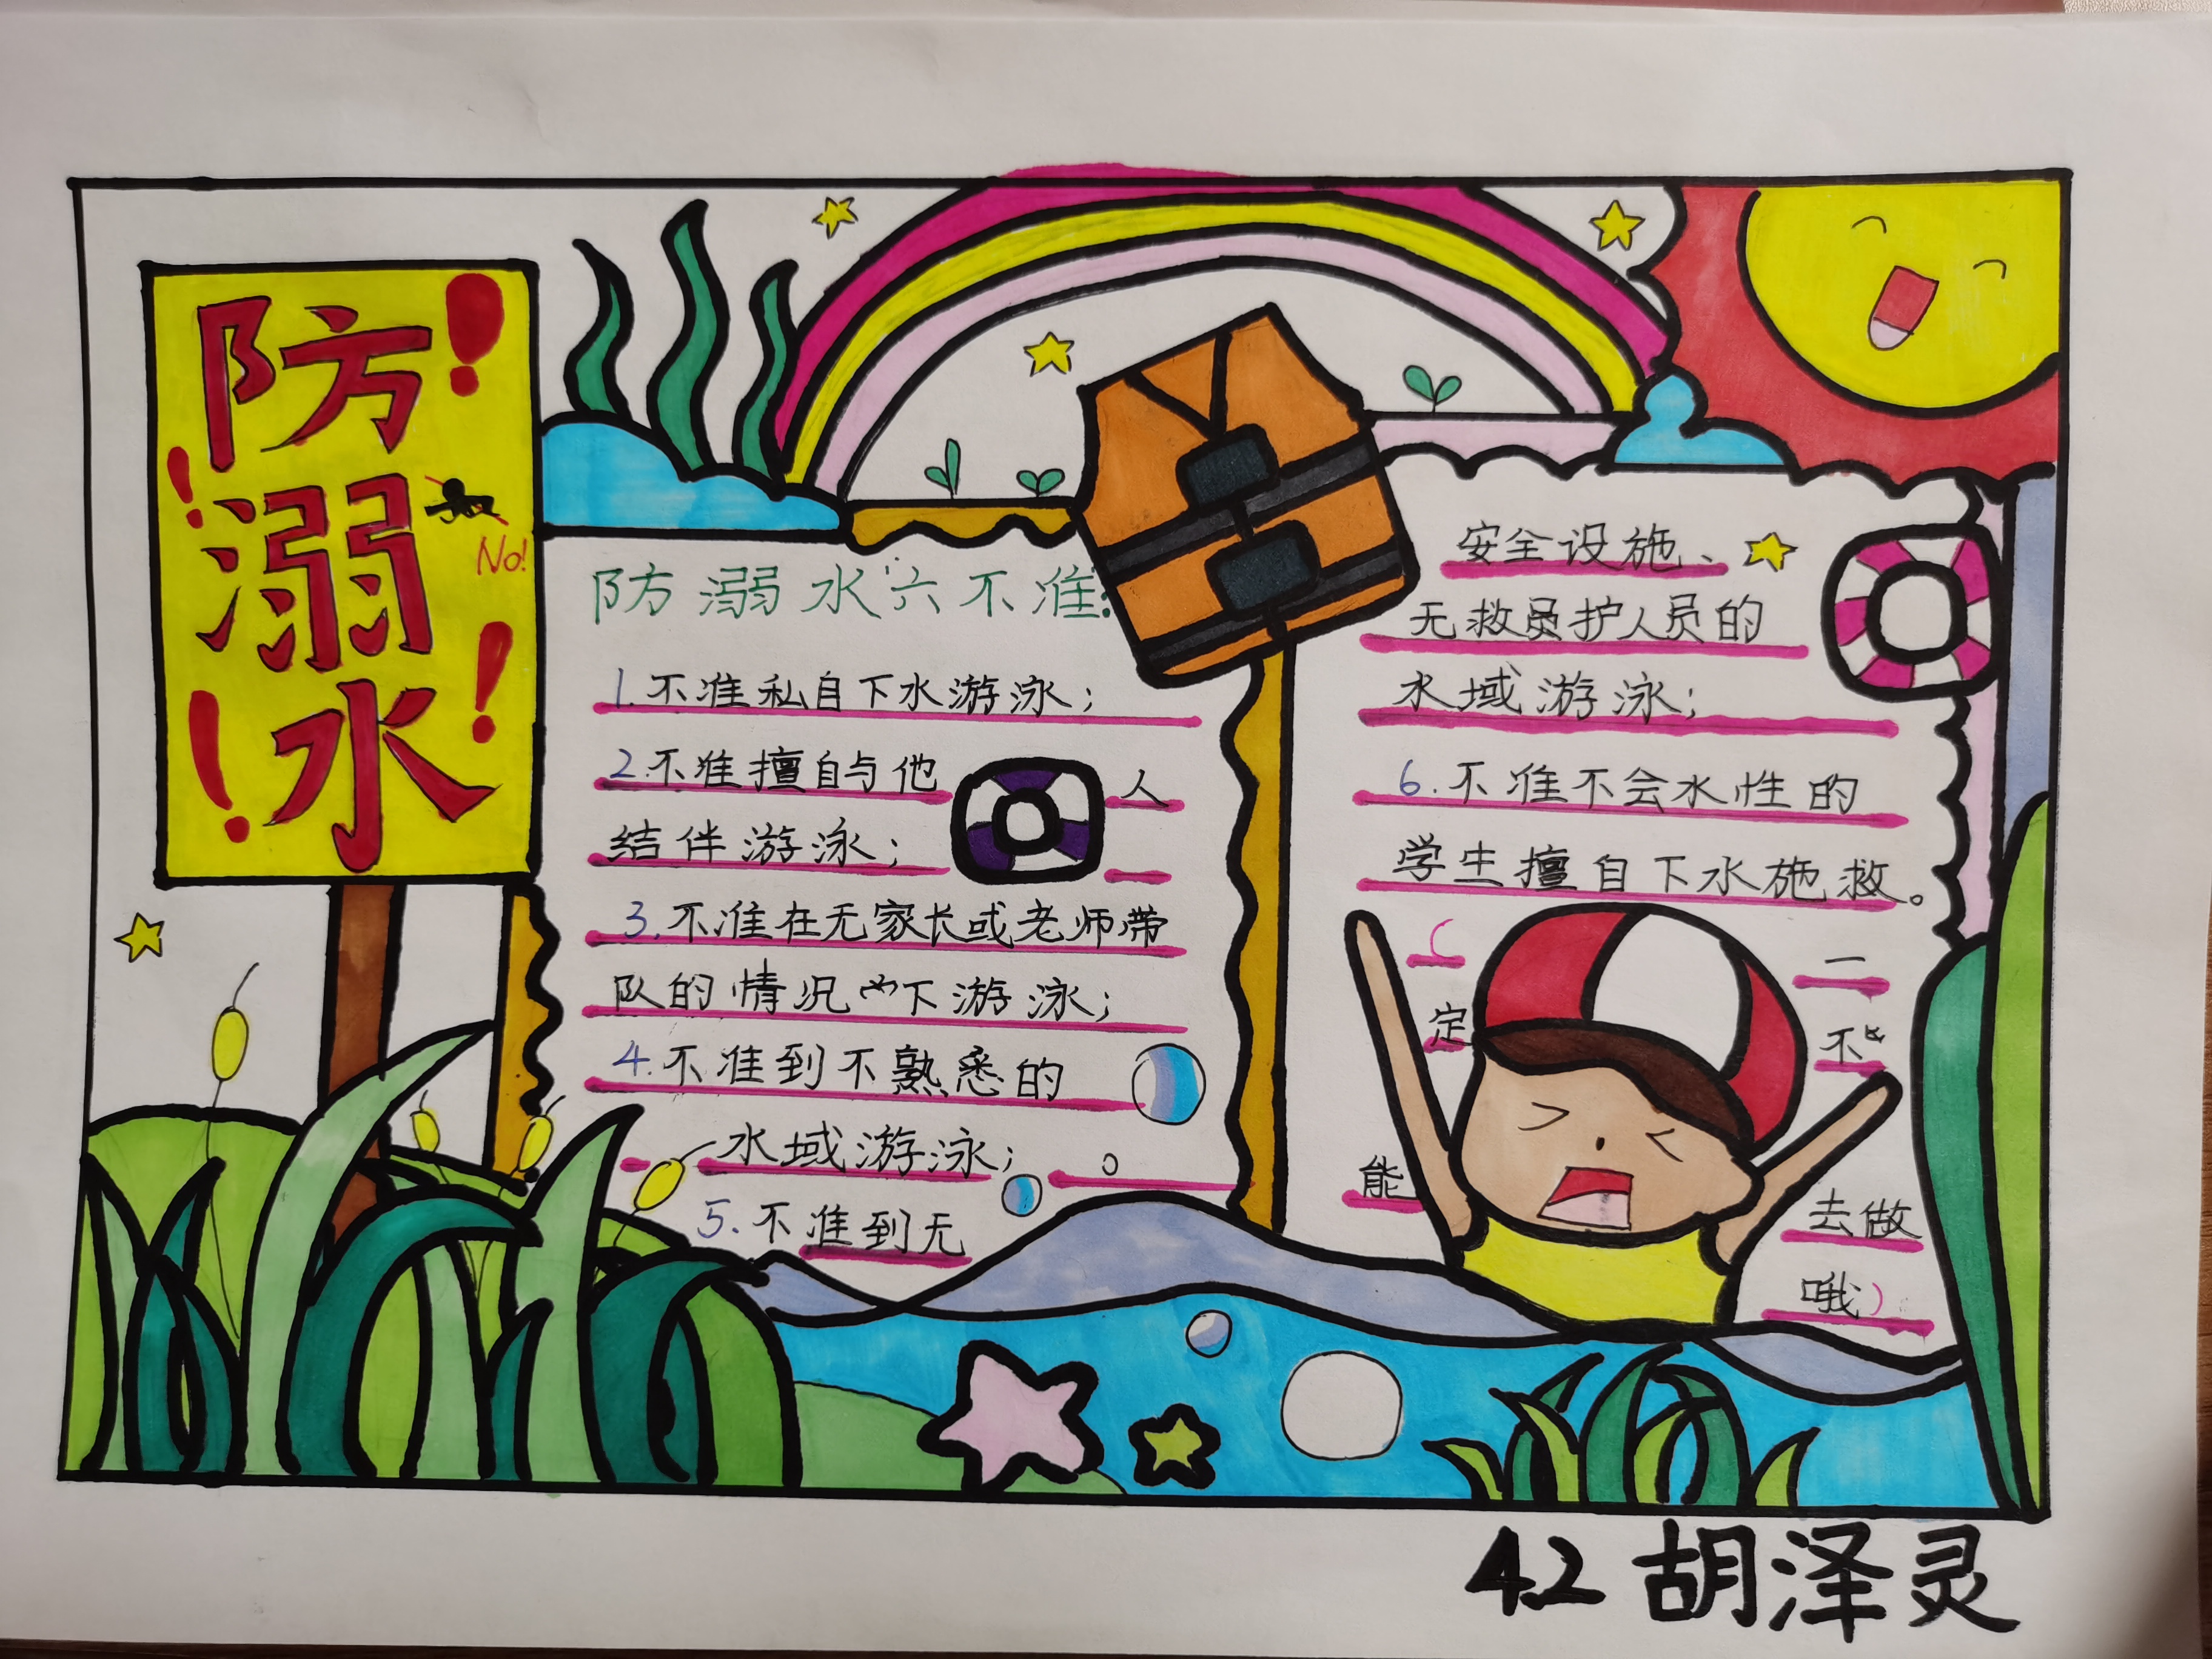 防溺水
No!
防溺水"六不准:
1.不准私自下水游泳;
2.不准擅自与他人
结伴游泳;
3.不准在无家长或老师带
队的情况下游泳;
4.不准到不熟悉的
水域游泳;
5.不准到无
安全设施、
无救员护人员的
水域游泳;
6.不准不会水性的
学生擅自下水施救。
(一
定不
能去做
哦)
42 胡泽灵